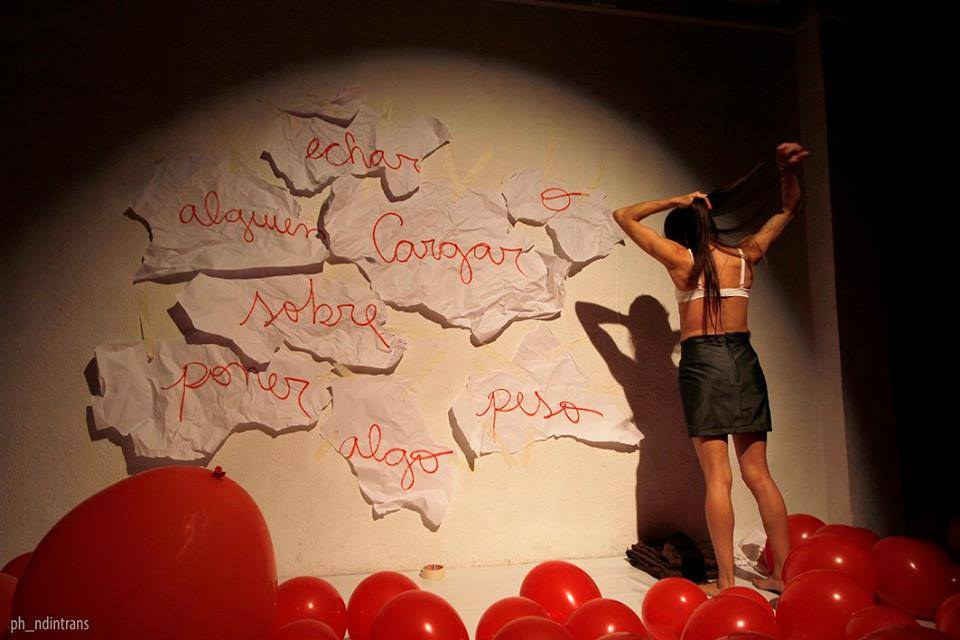 echar
alguien
Cargar
o
sobre
poner
algo
peso
ph_ndintrans